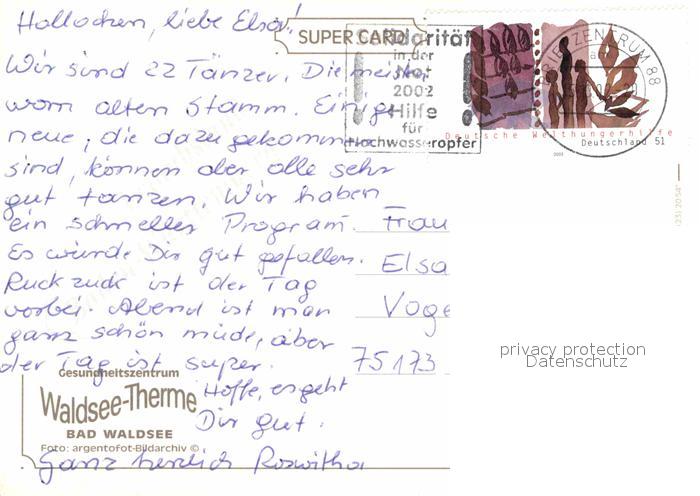 Hallochen, liebe Elsa!
SUPER CARD
Wir sind 22 Tänzer. Die meisten
vom alten Stamm. Einige
neue, die dazu gekommen
sind, können aber alle sehr
gut tanzen. Wir haben
ein schnelles Program.
Es würde Dir gut gefallen.
Ruck zuck ist der Tag
vorbei. Abend ist man
ganz schön müde, aber
der Tag ist super.
Hoffe, es geht
Dir gut.
Ganz herzlich Roswitha
Gesundheitszentrum
Waldsee-Therme
BAD WALDSEE
Foto: argentofot-Bildarchiv ©
Solidarität
in der
Not
2002
Hilfe
für
Hochwasseropfer
BRIEFZENTRUM 88
Deutsche Welthungerhilfe
Deutschland 51
2002
Frau
Elsa
Voge
75173
privacy protection
Datenschutz